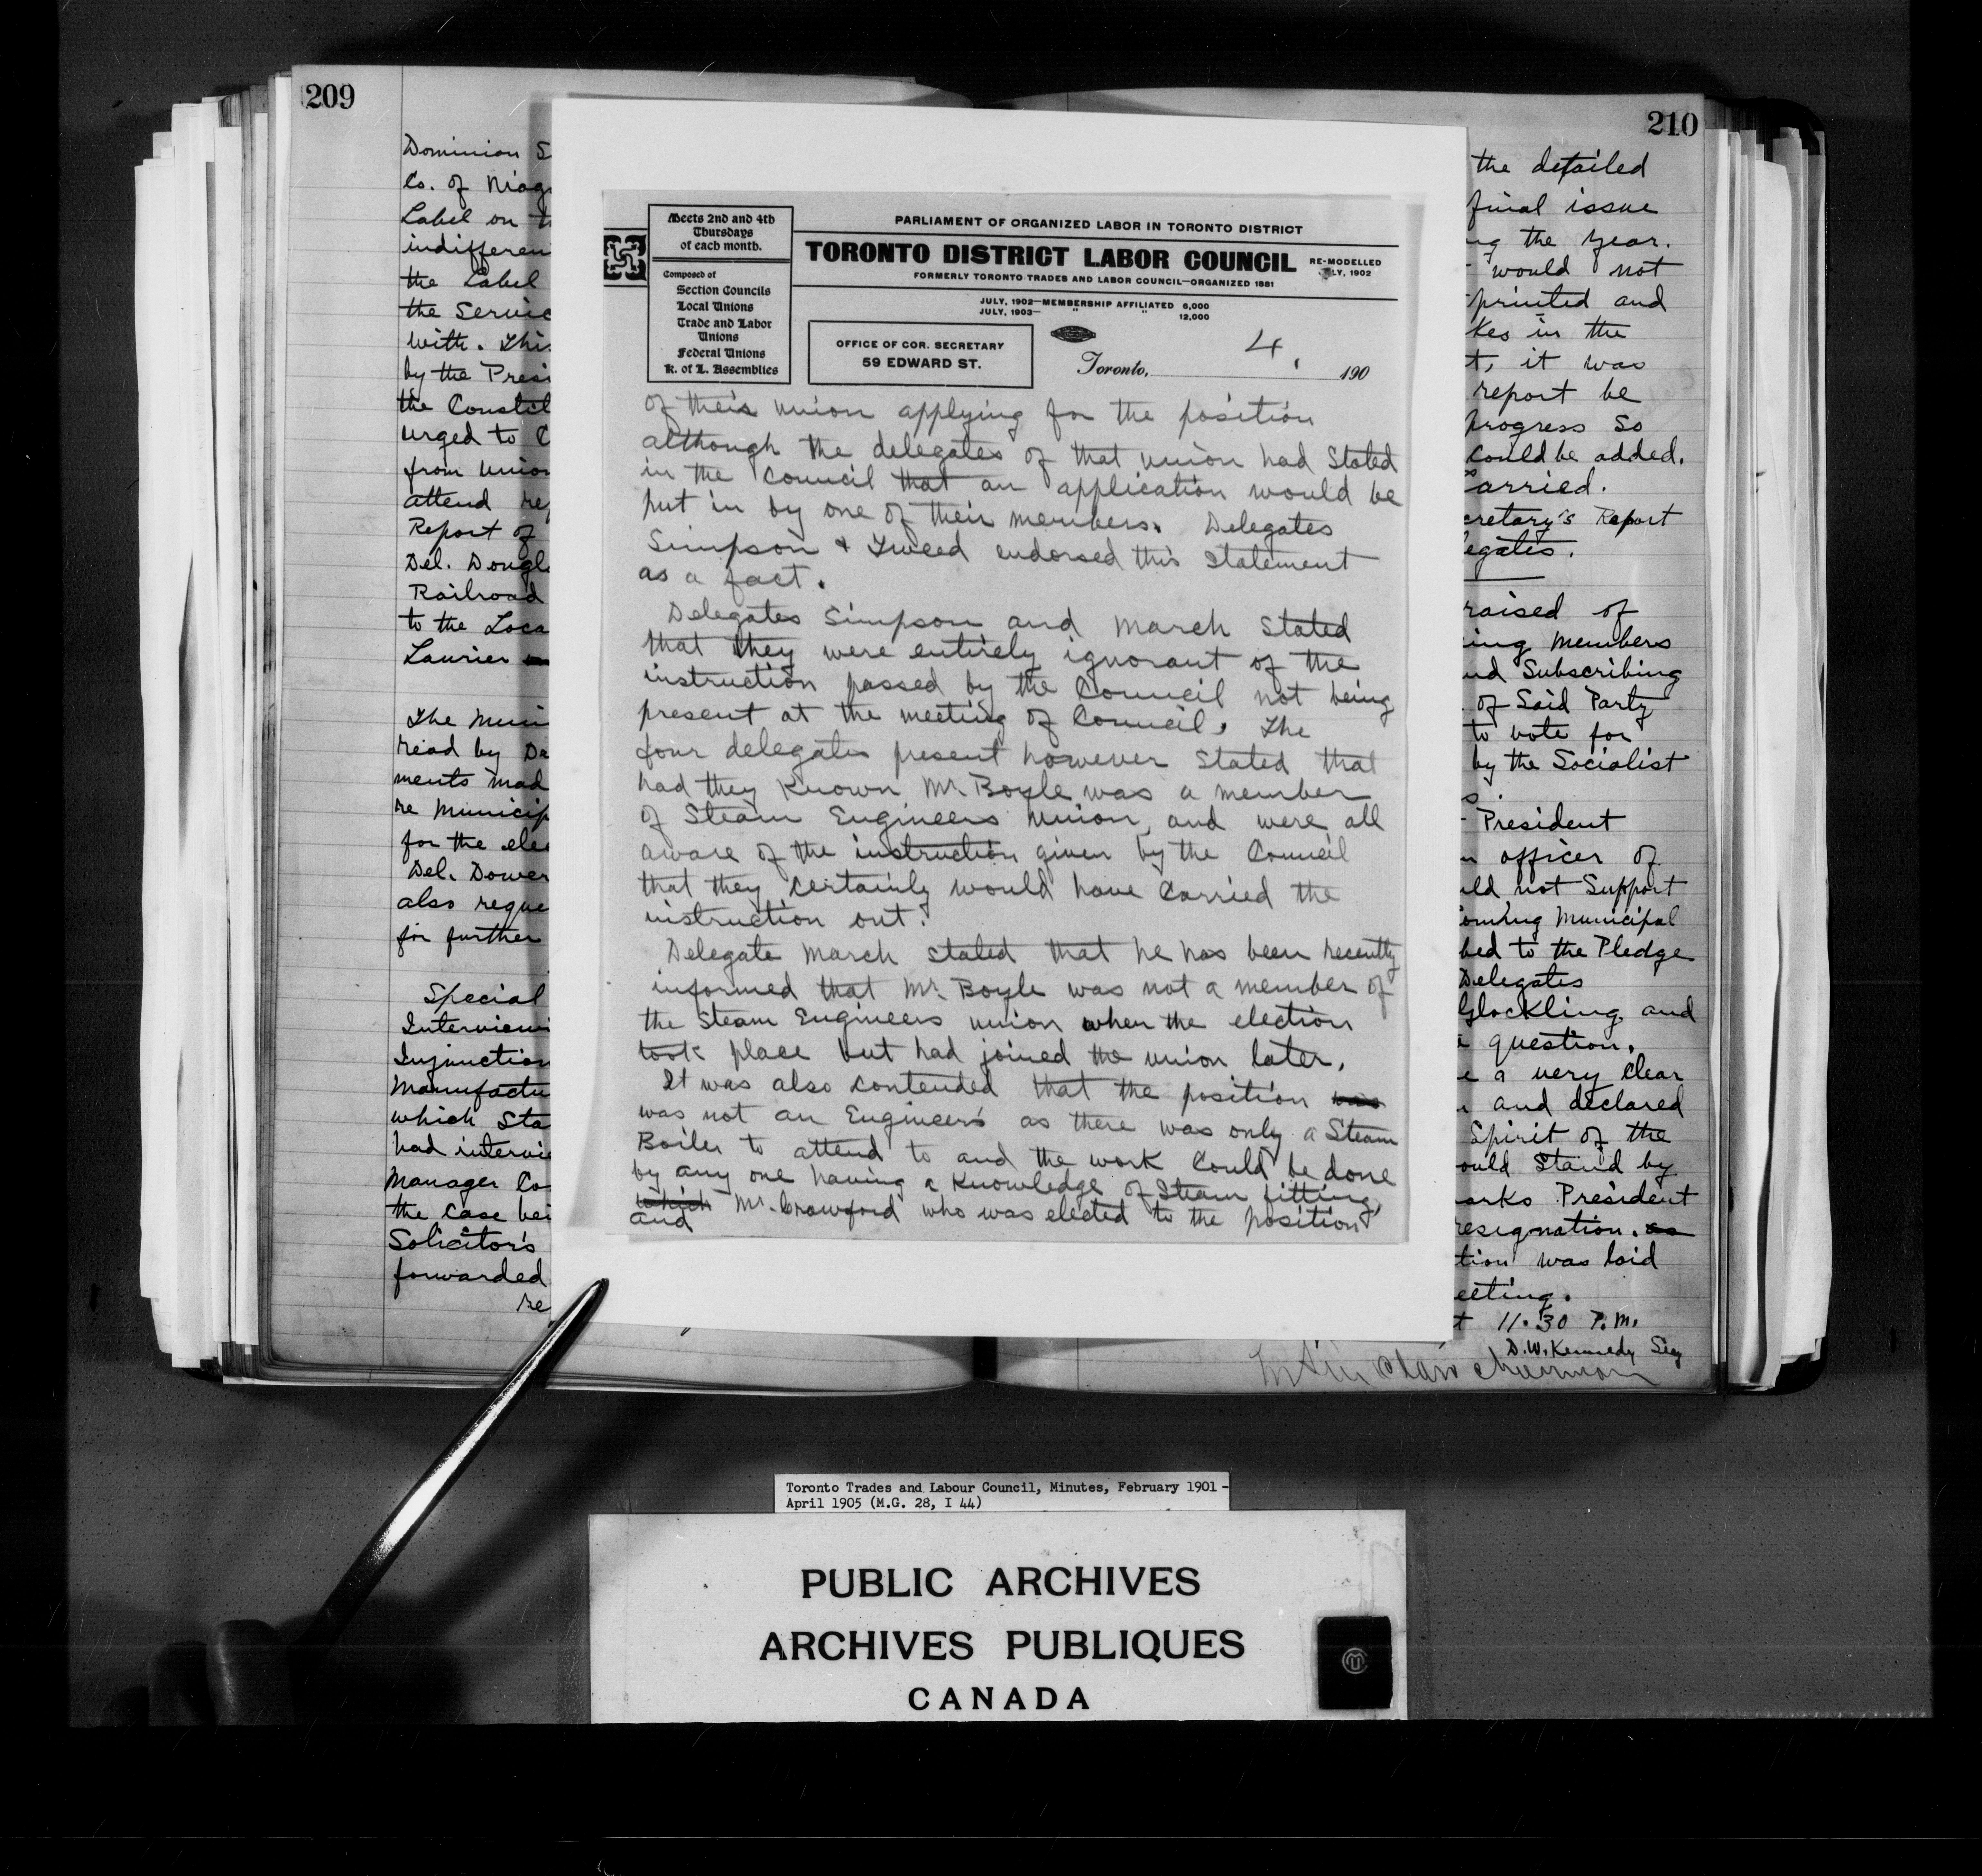 209
Dominion S
Co. of Niag
Label on t
indifferen
the Label
the Servic
with. This
by the Presi
the Constit
urged to C
from Union
attend re
Report of
Del. Dougl
Railroad
to the Loca
Laurier
The Muni
read by De
ments mad
re Municip
for the elec
Del. Dower
also reque
for further
Special
Interviewi
Injunction
Manufactu
which Sta
had intervie
Manager Co
the Case bei
Solicitor's
forwarded
re
Meets 2nd and 4th
Thursdays
of each month.
Composed of
Section Councils
Local Unions
Trade and Labor
Unions
Federal Unions
K. of L. Assemblies
PARLIAMENT OF ORGANIZED LABOR IN TORONTO DISTRICT
TORONTO DISTRICT LABOR COUNCIL
RE-MODELLED
LY, 1902
FORMERLY TORONTO TRADES AND LABOR COUNCIL—ORGANIZED 1881
JULY, 1902—MEMBERSHIP AFFILIATED 6,000
JULY, 1903— " " 12,000
OFFICE OF COR. SECRETARY
59 EDWARD ST.
4.
Toronto, 190
of their union applying for the position
although the delegates of that union had Stated
in the Council that an application would be
put in by one of their members. Delegates
Simpson & Tweed endorsed this Statement
as a fact.
Delegates Simpson and March Stated
that they were entirely ignorant of the
instruction passed by the Council not being
present at the meeting of Council. The
four delegates present however Stated that
had they Known Mr. Boyle was a member
of Steam Engineers Union, and were all
aware of the instruction given by the Council
that they certainly would have Carried the
instruction out.
Delegate March Stated that he has been recently
informed that Mr. Boyle was not a member of
the Steam Engineers union when the election
took place but had joined the union later.
It was also Contended that the position was
was not an Engineer's as there was only a Steam
Boiler to attend to and the work Could be done
by any one having a Knowledge of Steam fitting,
which Mr. Crawford who was elected to the position
and
210
the detailed
final issue
ng the year.
would not
printed and
kes in the
t, it was
report be
Progress So
Could be added.
Carried.
cretary's Report
legates.
raised of
ing Members
nd Subscribing
of Said Party
to vote for
by the Socialist
s.
President
n officer of
uld not Support
Coming Municipal
bed to the Pledge
Delegates
Glockling and
a question.
e a very Clear
and declared
Spirit of the
ould Stand by
arks President
resignation. as
tion was laid
eeting.
t 11.30 P.M.
D.W. Kennedy Secy
Chairman
Toronto Trades and Labour Council, Minutes, February 1901 -
April 1905 (M.G. 28, I 44)
PUBLIC ARCHIVES
ARCHIVES PUBLIQUES
CANADA